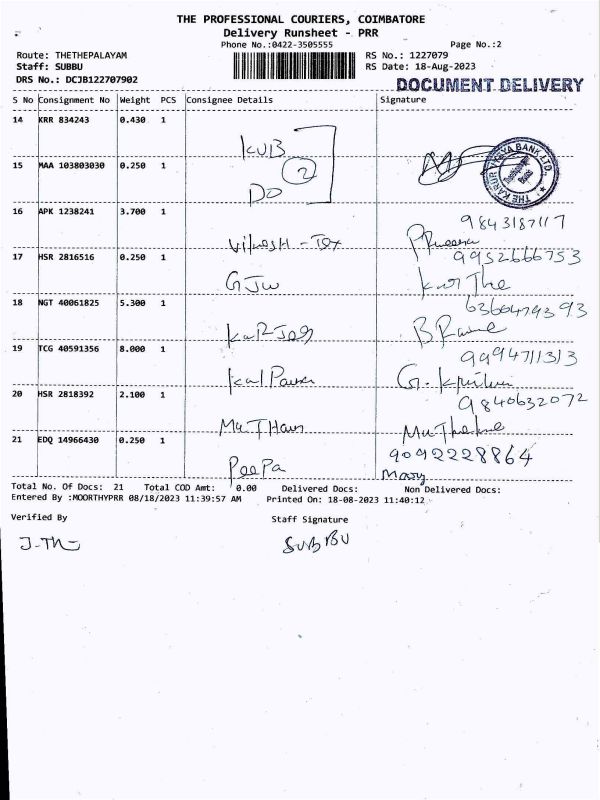 THE PROFESSIONAL COURIERS, COIMBATORE
Delivery Runsheet - PRR
Phone No.:0422-3505555 Page No.:2
Route: THETHEPALAYAM RS No.: 1227079
Staff: SUBBU RS Date: 18-Aug-2023
DRS No.: DCJB122707902
DOCUMENT DELIVERY
S No Consignment No Weight PCS Consignee Details Signature
14 KRR 834243 0.430 1
KVB
15 MAA 103803030 0.250 1
2
DO
THE KARUR VYSYA BANK LTD.
16 APK 1238241 3.700 1
9843187117
17 HSR 2816516 0.250 1
9952666753
GJW
18 NGT 40061825 5.300 1
19 TCG 40591356 8.000 1
9994711313
20 HSR 2818392 2.100 1
9840632072
21 EDQ 14966430 0.250 1
9092228864
PeePa
Total No. Of Docs: 21 Total COD Amt: 0.00 Delivered Docs: Non Delivered Docs:
Entered By :MOORTHYPRR 08/18/2023 11:39:57 AM Printed On: 18-08-2023 11:40:12
Verified By Staff Signature
SUBBU